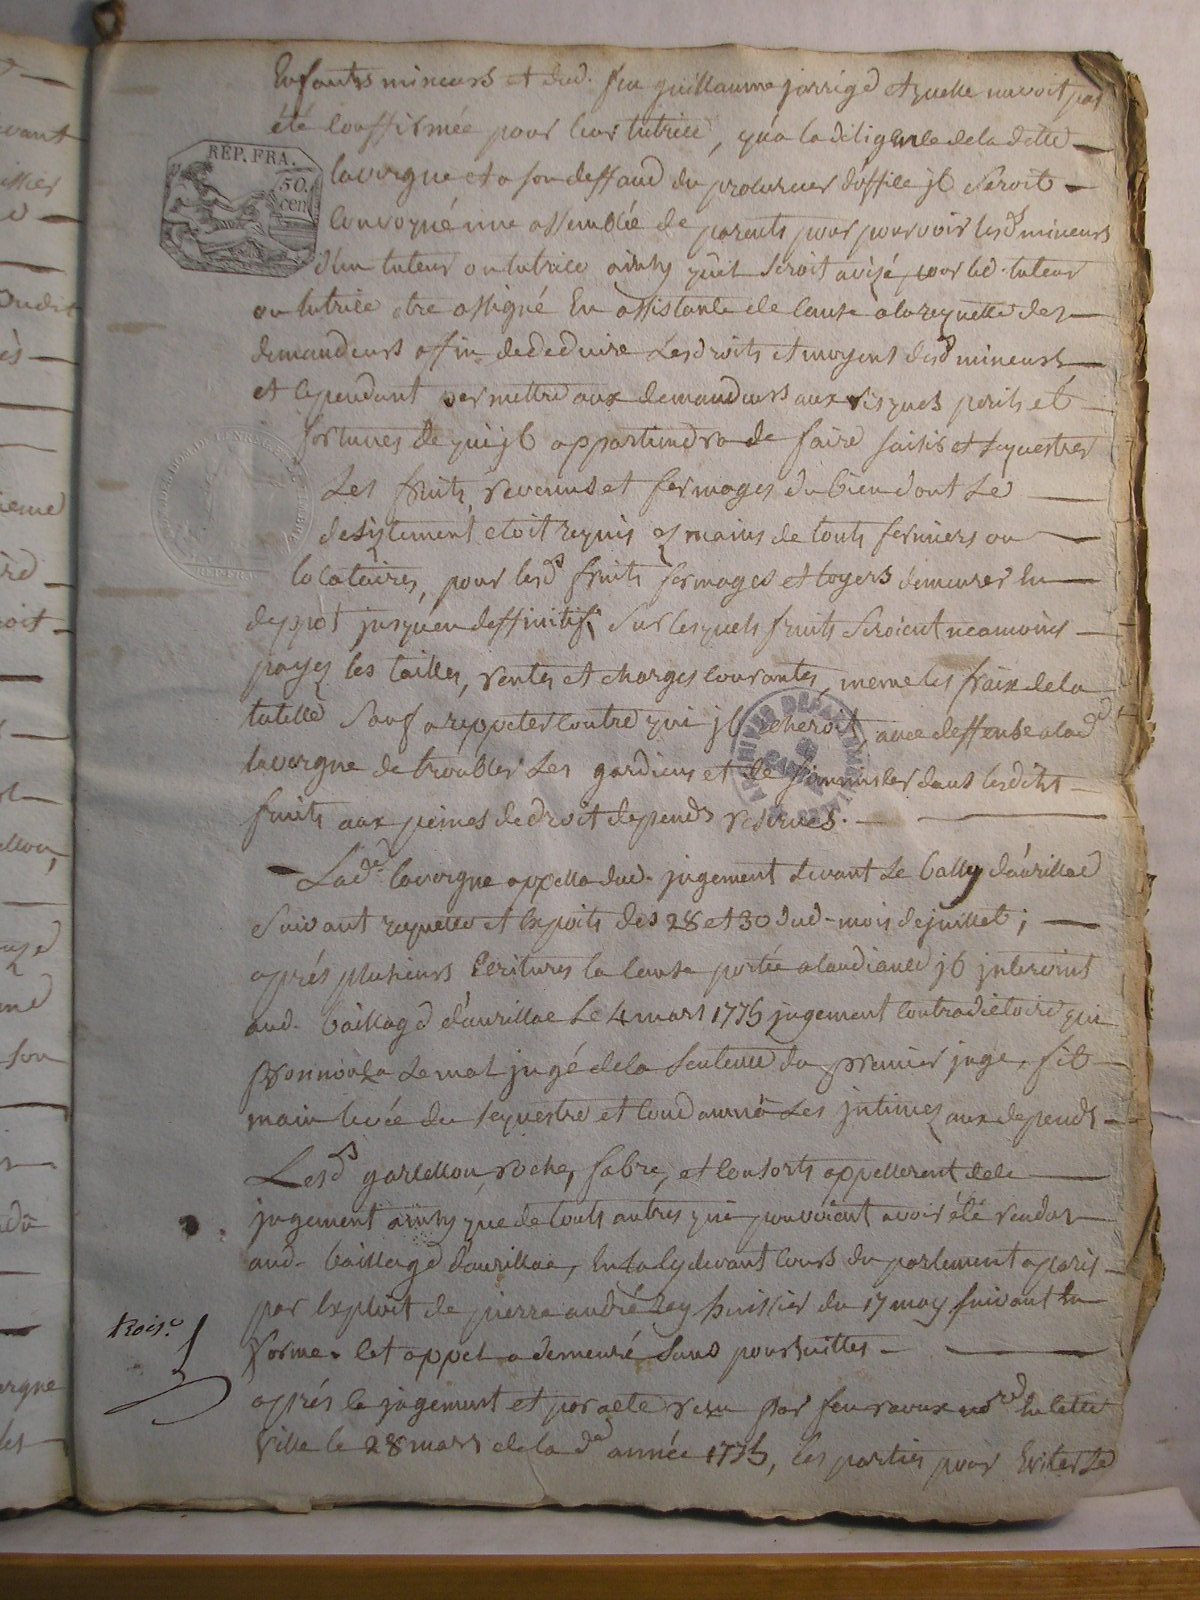 Enfants mineurs et dud. feu guillaume jarrige et quelle navoit pas
été confirmée pour leur tutrice, qua la diligence de la dette
REP. FRA.
50.
cen
lavergne et a son deffaud du procureur d'office jl seroit
convoqué une assemblée de parents pour pourvoir lesd mineurs
d'un tuteur ou tutrice ainsy quil seroit avizé, pour led. tuteur
ou tutrice etre assigné en assistante de cause a la requette des
demandeurs affin de deduire les droits et moyens desd mineurs
et cependant permettre aux demandeurs aux risques perils et
fortunes de qui jl appartiendra de faire saisir et sequestrer
Les fruits, revenus et fermages du bien dont le
desistement etoit requis es mains de touts fermiers ou
locataires, pour lesd fruits fermages et loyers demeurer en
deppot jusquen deffinitif, sur lesquels fruits seroient neamoins
payes les tailles, rentes et charges courantes, meme les fraix de la
tutelle sauf a reppeter contre qui jl echeroit, avec deffense a lad
lavergne de troubler les gardiens et de simmisser dans lesdits
fruits aux peines de droit depends reservés.
Lade lavergne appella dud. jugement devant le bally d'aurillac
suivant requette et exploits des 28 et 30 dud. mois de juillet;
après plusieurs Ecritures la cause portée a laudiance jl jntervint
aud. baillage d'aurillac le 4 mars 1775 jugement contradictoire qui
prononça le mal jugé de la sentence du premier juge, fit
main levée du sequestre et condamna les jntimes aux depends.
Lesd garcellon, roche, fabre, et consorts appellerent de ce
jugement ainsy que de touts autres qui pouvoient avoir été rendus
aud. baillage d'aurillac, en la cy devant cours du parlement a paris
par exploit de pierre andré rey huissier du 17 may suivant en
forme. cet appel a demeuré sans poursuittes
Rois.e
après le jugement et par acte reçu par feu ravoux nore en cette
ville le 28 mars de la de année 1775, les parties pour Eviter le